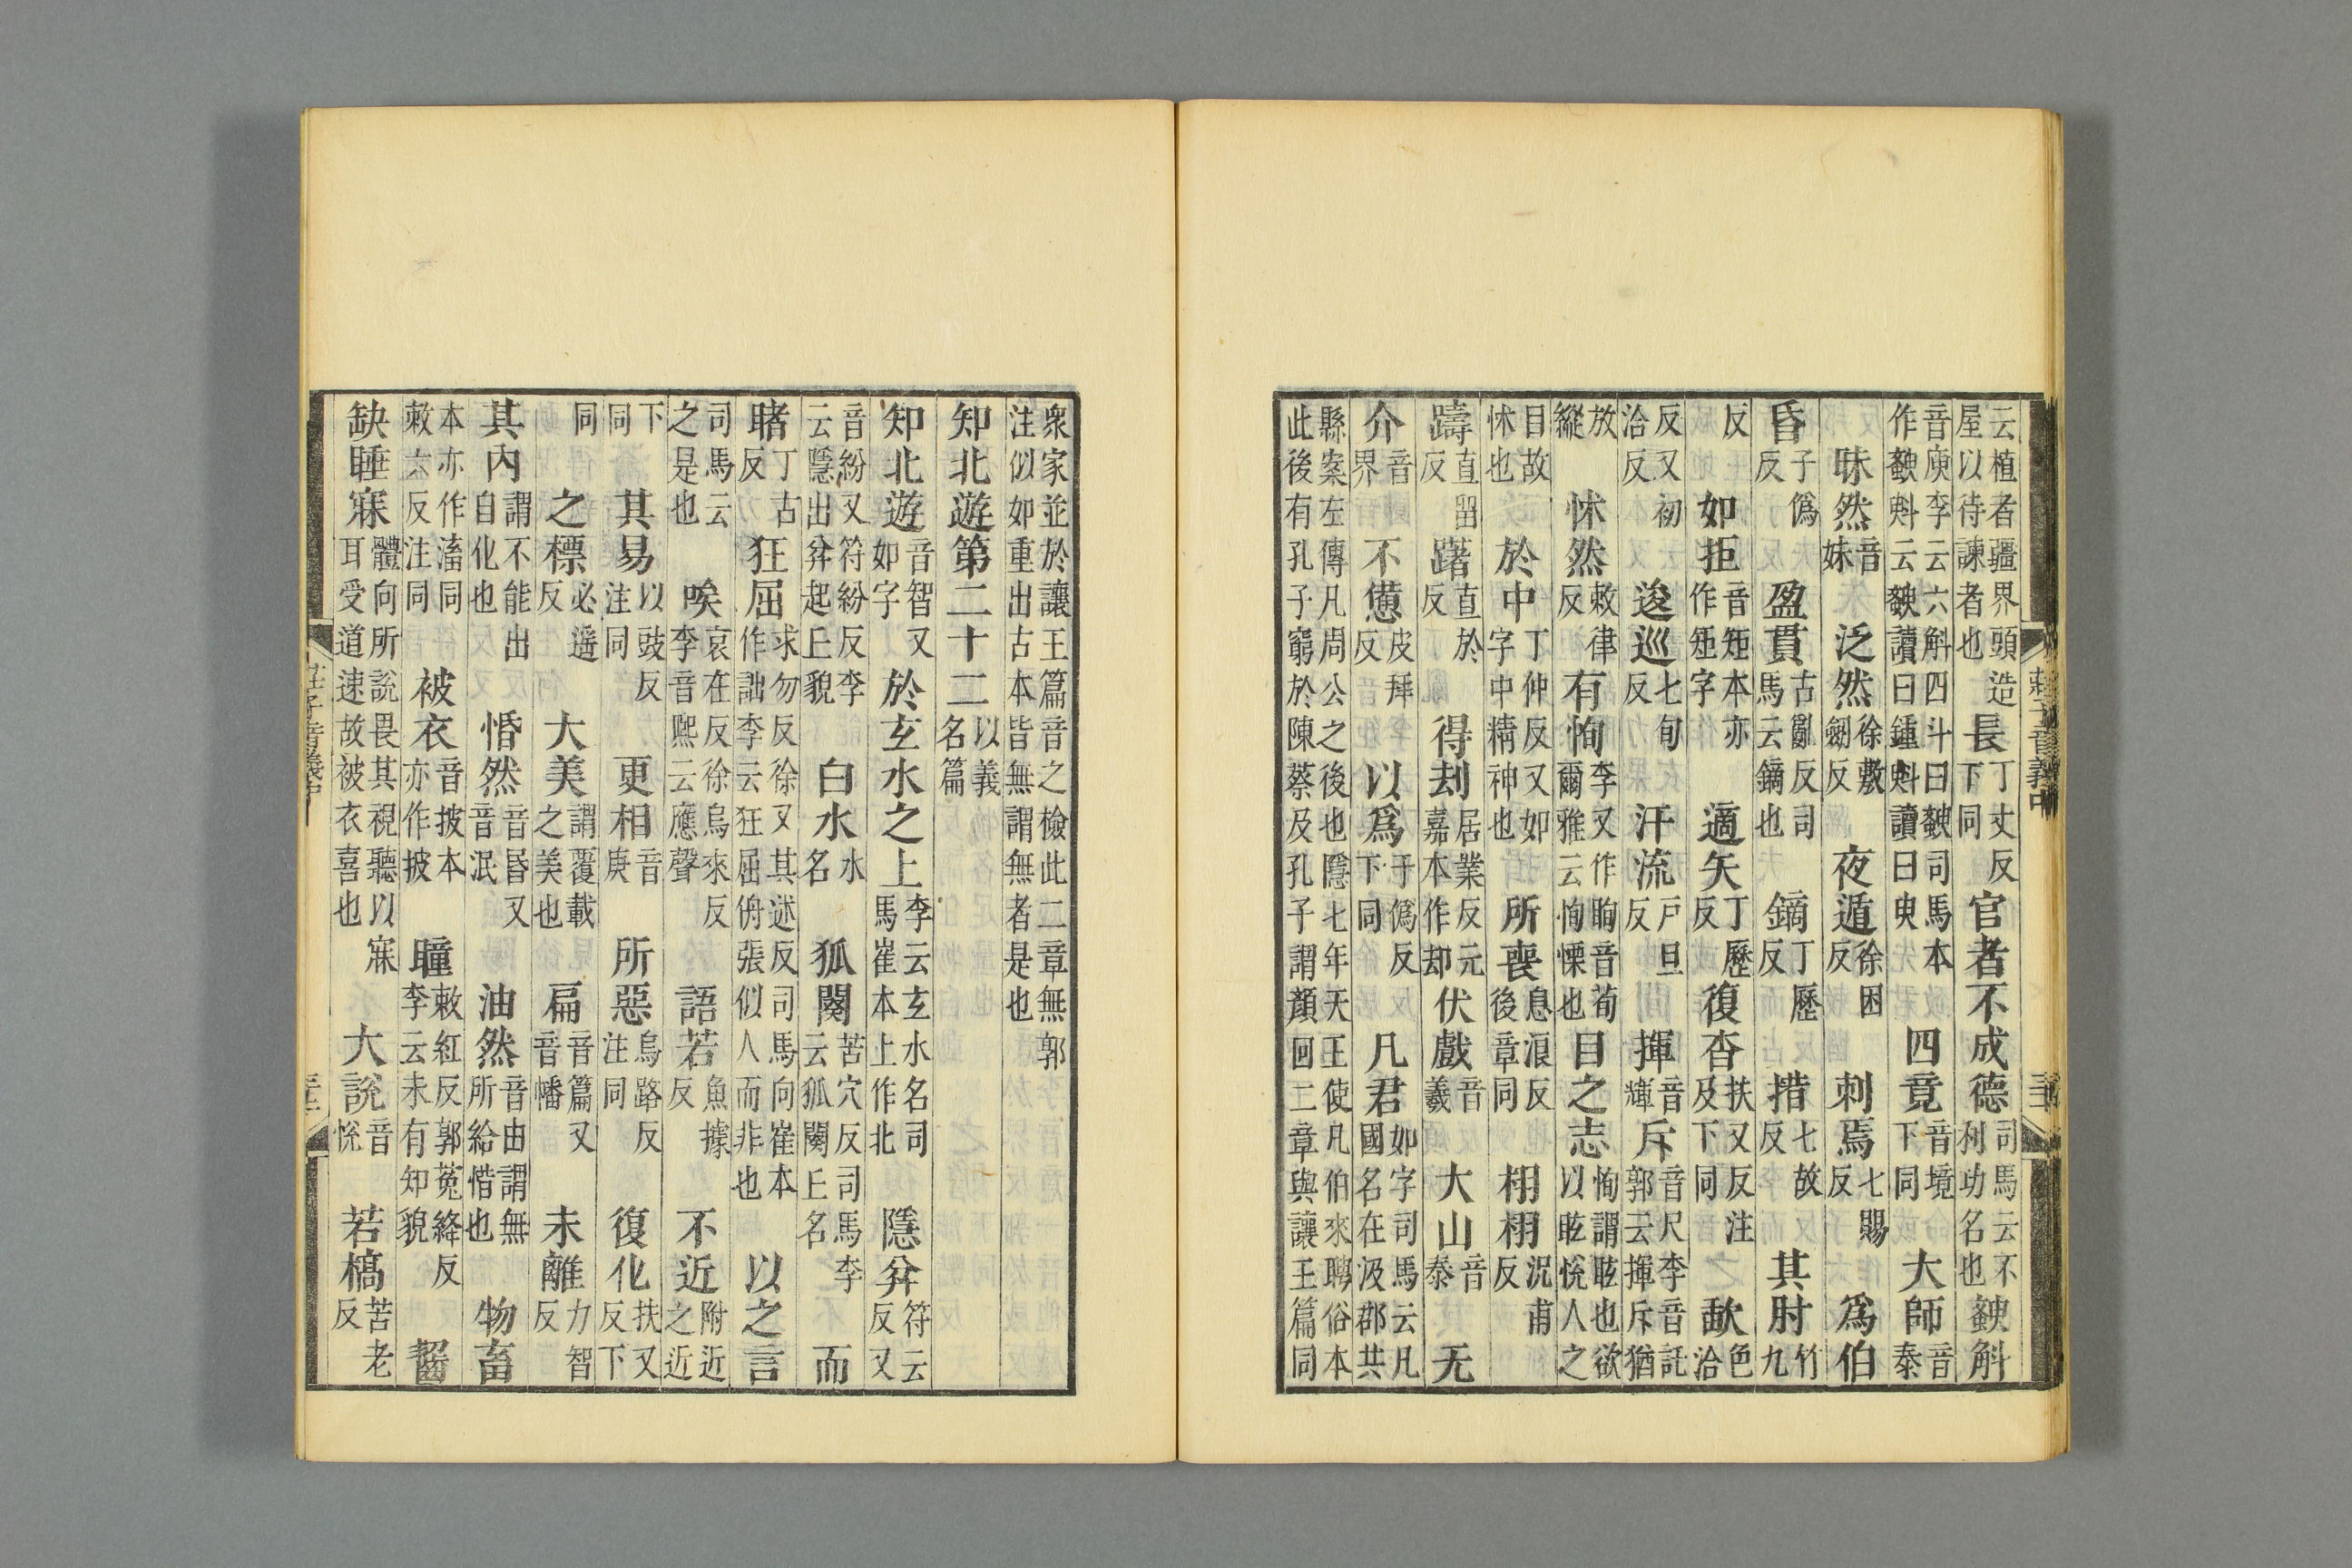 云植者疆界頭造屋以待諫者也長丁丈反下同官者不成德司馬云不利功名也斔斛
音庾李云六斛四斗曰斔司馬本作斔斞云斔讀曰鍾斞讀曰臾四竟音境下同大師音泰
昧然音妹泛然徐敷劒反夜遁徐困反刺焉七賜反爲伯
昏子僞反盈貫古亂反司馬云鏑也鏑丁歷反措七故反其肘竹九
反如拒音矩本亦作矩字適矢丁歷反復沓扶又反注及下同歃色洽
反又初洽反逡巡七旬反汗流戶旦反揮音輝斥音尺李音託郭云揮斥猶
放縱怵然敕律反有恂李又作眴音荀爾雅云恂慄也目之志恂謂眩也欲以眩悅人之
目故怵也於中丁仲反又如字中精神也所喪息浪反後章同栩栩況甫反
躊直畱反躇直於反得刦居業反元嘉本作却伏戲音羲大山音泰无
介音界不憊皮拜反以爲于僞反下同凡君如字司馬云凡國名在汲郡共
縣案左傳凡周公之後也隱七年天王使凡伯來聘俗本此後有孔子窮於陳蔡及孔子謂顏回二章與讓王篇同
衆家並於讓王篇音之檢此二章無郭注似如重出古本皆無謂無者是也
知北遊第二十二以義名篇
知北遊音智又如字於玄水之上李云玄水名司馬崔本上作北隱弅符云反又
音紛又符紛反李云隱出弅起丘貌白水水名狐闋苦穴反司馬李云狐闋丘名而
睹丁古反狂屈求勿反徐又其述反司馬向崔本作詘李云狂屈侜張似人而非也以之言
司馬云之是也唉哀在反徐烏來反李音熙云應聲語若魚據反不近附近之近
下同其易以豉反注同更相音庚所惡烏路反注同復化扶又反下
同之標必遥反大美謂覆載之美也扁音篇又音幡未離力智反
其內謂不能出自化也惛然音昏又音泯油然音由謂無所給惜也物畜
本亦作滀同敕六反注同被衣音披本亦作披瞳敕紅反郭菟絳反李云未有知貌齧
缺睡寐體向所說畏其視聽以寐耳受道速故被衣喜也大說音悅若槁苦老反
莊子音義中